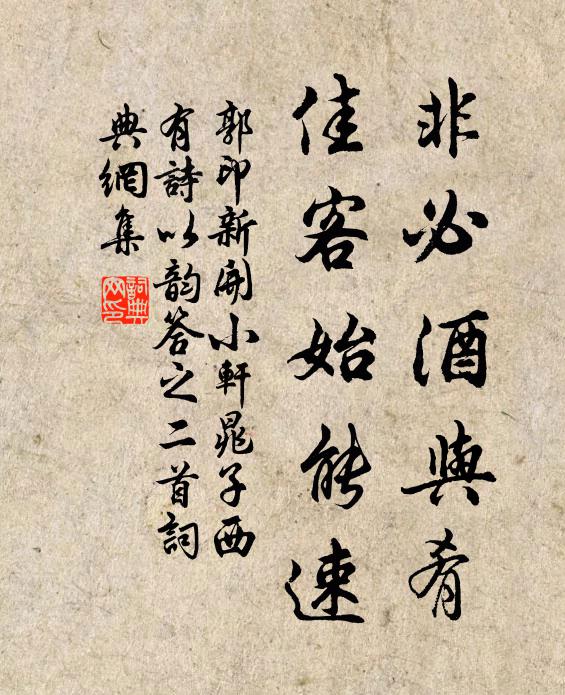 非必酒與肴
佳客始能速
郭印新開小軒晁子西
有詩以韵答之二首詞
典網集
詞典網印